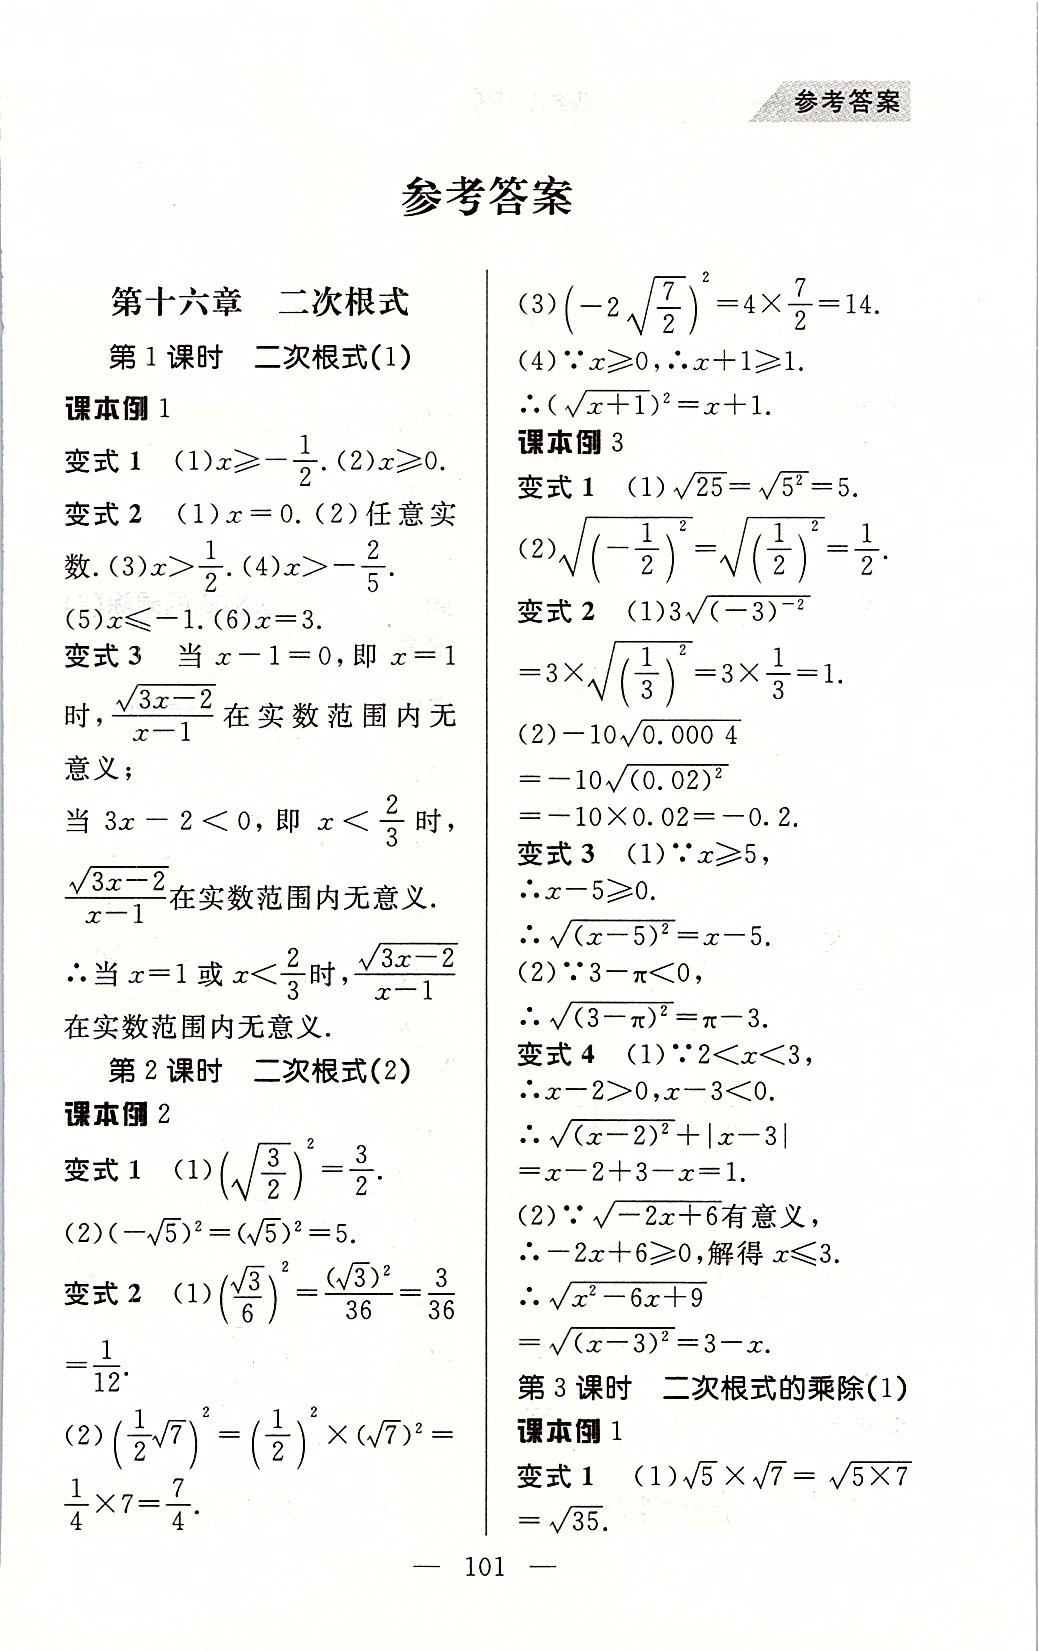 参考答案
参考答案
第十六章　二次根式
第 1 课时　二次根式(1)
课本例 1
变式 1　(1)x≥-1/2.(2)x≥0.
变式 2　(1)x=0.(2)任意实
数.(3)x>1/2.(4)x>-2/5.
(5)x≤-1.(6)x=3.
变式 3　当 x-1=0,即 x=1
时,√(3x-2)/(x-1)在实数范围内无
意义;
当 3x-2<0,即 x<2/3时,
√(3x-2)/(x-1)在实数范围内无意义.
∴当 x=1 或 x<2/3时,√(3x-2)/(x-1)
在实数范围内无意义.
第 2 课时　二次根式(2)
课本例 2
变式 1　(1)(√(3/2))²=3/2.
(2)(-√5)²=(√5)²=5.
变式 2　(1)(√3/6)²=(√3)²/36=3/36
=1/12.
(2)(1/2√7)²=(1/2)²×(√7)²=
1/4×7=7/4.
(3)(-2√(7/2))²=4×7/2=14.
(4)∵x≥0,∴x+1≥1.
∴(√(x+1))²=x+1.
课本例 3
变式 1　(1)√25=√5²=5.
(2)√((-1/2)²)=√((1/2)²)=1/2.
变式 2　(1)3√((-3)⁻²)
=3×√((1/3)²)=3×1/3=1.
(2)-10√(0.000 4)
=-10√((0.02)²)
=-10×0.02=-0.2.
变式 3　(1)∵x≥5,
∴x-5≥0.
∴√((x-5)²)=x-5.
(2)∵3-π<0,
∴√((3-π)²)=π-3.
变式 4　(1)∵2<x<3,
∴x-2>0,x-3<0.
∴√((x-2)²)+|x-3|
=x-2+3-x=1.
(2)∵√(-2x+6)有意义,
∴-2x+6≥0,解得 x≤3.
∴√(x²-6x+9)
=√((x-3)²)=3-x.
第 3 课时　二次根式的乘除(1)
课本例 1
变式 1　(1)√5×√7=√(5×7)
=√35.
— 101 —